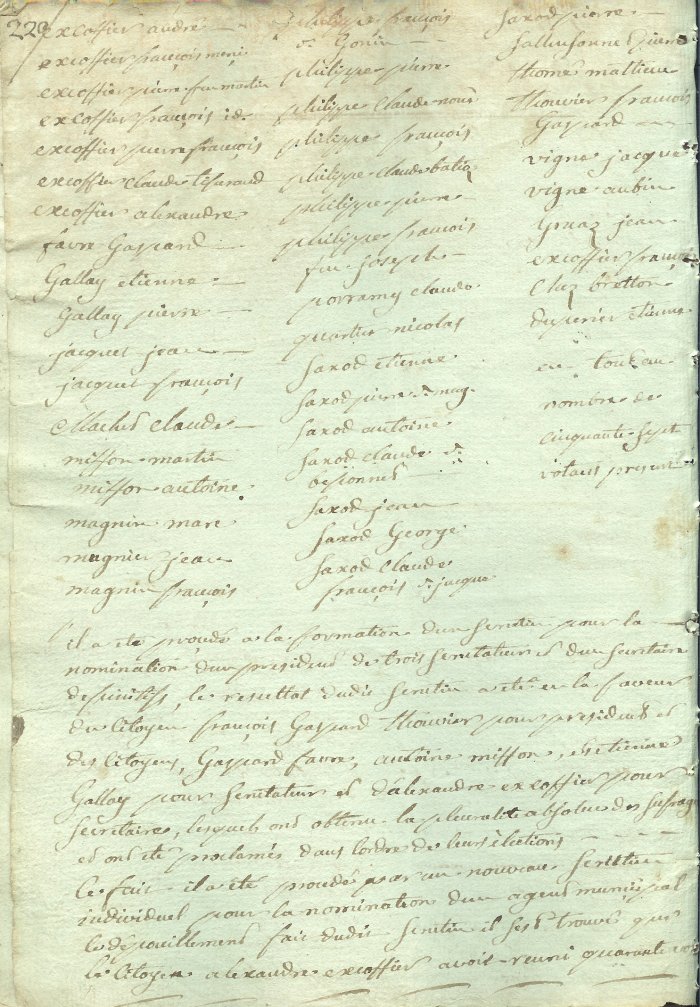 223
excoffier andré
excoffier françois meni
excoffier pierre feu martin
excoffier françois id.
excoffier pierre françois
excoffier claude
excoffier alexandre
favre Gaspard
Gallay etienne
Gallay pierre
jacquet jean
jacquet françois
claude
misson martin
misson antoine
magnin marc
magnin jean
magnin françois
philippe françois
d. Gonin
philippe pierre
philippe claude noué
philippe françois
philippe claude batiq
philippe pierre
philippe françois
feu Joseph
porramy claude
quartier nicolas
saxod etienne
saxod pierre d. mag.
saxod antoine
saxod claude d.
saxod jean
saxod George
saxod claude
françois d. jacque
saxod pierre
pierre
thomé mathieu
thouvier françois
Gaspard
vigne jacque
vigne aubin
Gruaz jean
excoffier françois
Chez bretton
duperier etienne
en tout au
nombre de
cinquante sept
votans present
il a été procédé a la formation d'un scrutin pour la
nomination d'un president de trois scrutateurs et d'un secretaire
definitifs, le resultat dudis scrutin a été en la faveur
du Citoyen françois Gaspard thouvier pour president et
des Citoyens, Gaspard favre, antoine misson, et etienne
Gallay pour scrutateur et d'alexandre excoffier pour
secretaire, lesquels ont obtenu la pluralité absolue des sufrage
et ont été proclamés dans l'ordre de leurs élections
Ce fait il a été procédé par un nouveau scrutin
individuel pour la nomination d'un agent municipal
le dépouillement fait dudis scrutin il s'est trouvé que
le Citoyen alexandre excoffier avoit reuni quarante